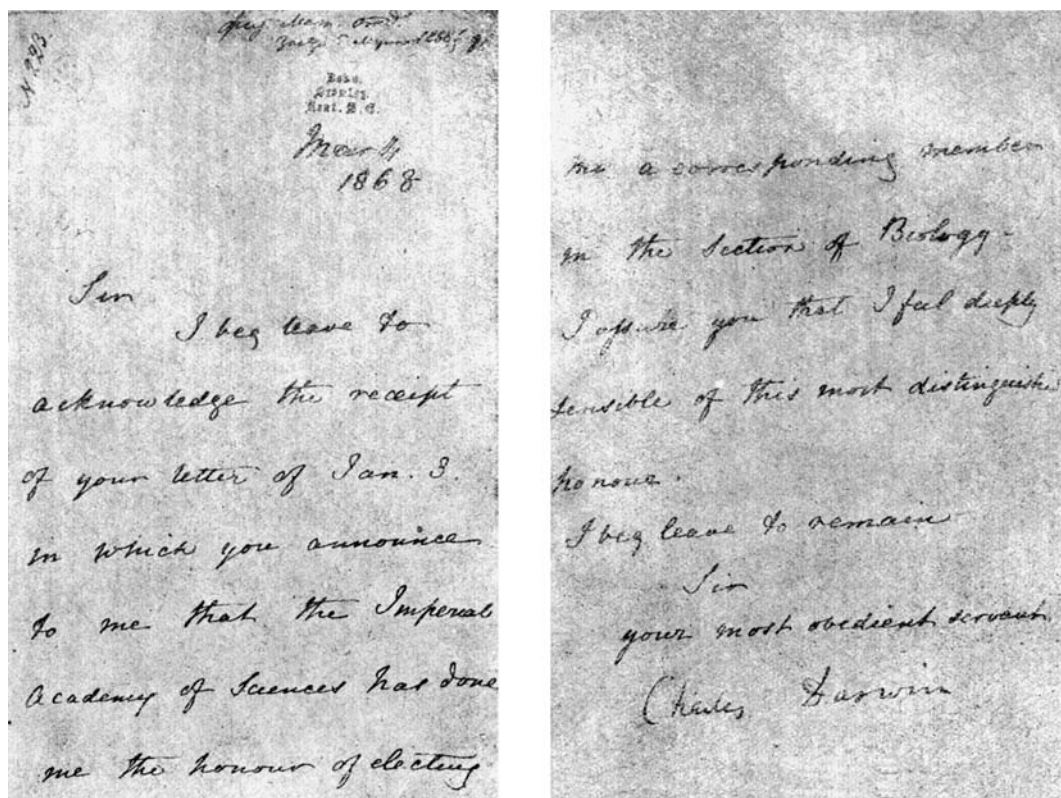 N 223.
Down.
Bromley.
Kent. S.E.
1868
Sir
I beg leave to
acknowledge the receipt
of your letter of Jan. 3.
in which you announce
to me that the Imperial
Academy of Sciences has done
me the honour of electing
me a corresponding member
in the Section of Biology –
I assure you that I feel deeply
sensible of this most distinguishe
honour.
I beg leave to remain
Sir
your most obedient servant
Charles Darwin